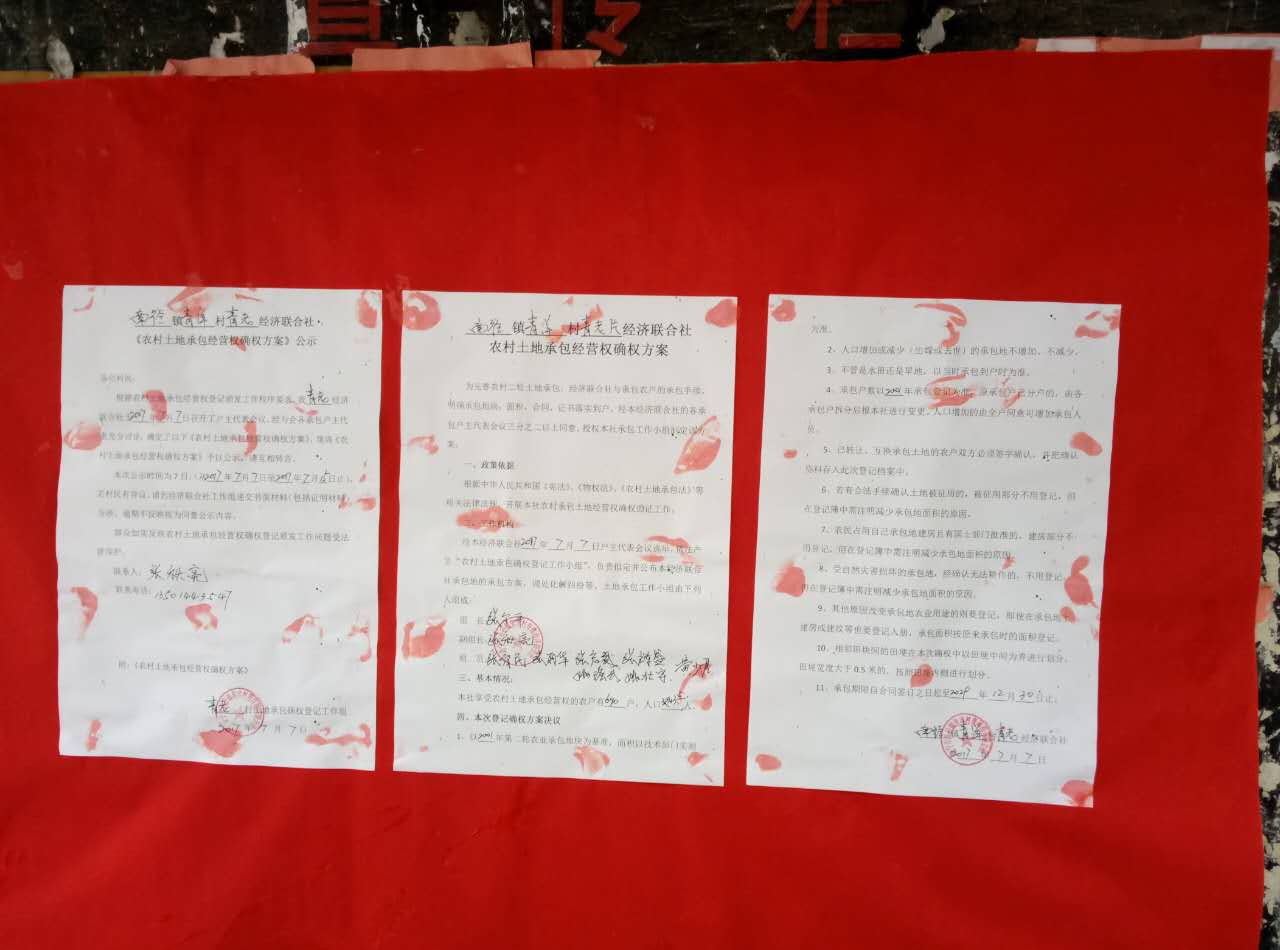 宣传栏
南径镇青洋村青老经济联合社
《农村土地承包经营权确权方案》公示
各位村民：
根据农村土地承包经营权登记颁发工作程序要求，我青老经济
联合社2017年7月7日召开了户主代表会议，经与会各承包户主代
表充分讨论，确定了以下《农村土地承包经营权确权方案》，现将《农
村土地承包经营权确权方案》予以公示，请互相转告。
本次公示时间为7日，（2017年7月7日至2017年7月15日止），
若村民有异议，请到经济联合社工作组递交书面材料（包括证明材料）
分诉，逾期不反映视为同意公示内容。
群众如实反映农村土地承包经营权确权登记颁发工作问题受法
律保护。
联系人：张
联系电话：13501443547
附：《农村土地承包经营权确权方案》
青老 村土地承包确权登记工作组
2017年7月7日
南径镇青洋村青老片经济联合社
农村土地承包经营权确权方案
为完善农村二轮土地承包，经济联合社与承包农户的承包手续，
明确承包地块、面积、合同、证书落实到户，经本经济联合社的各承
包户主代表会议三分之二以上同意，授权本社承包工作小组制定该方
案：
一、政策依据
根据中华人民共和国《宪法》、《物权法》、《农村土地承包法》等
相关法律法规，开展本社农村承包土地经营权确权登记工作。
二、工作机构
经本经济联合社2017年7月7日户主代表会议选举，依法产
生“农村土地承包确权登记工作小组”，负责拟定并公布本经济联合
社承包地的承包方案，调处化解纠纷等，土地承包工作小组由下列
人组成：
组 长：张
副组长：张
组 员：
三、基本情况：
本社享受农村土地承包经营权的农户有690户，人口 人。
四、本次登记确权方案决议
1、以2001年第二轮农业承包地块为基准，面积以技术部门实测
为准。
2、人口增加或减少（出嫁或去世）的承包地不增加、不减少。
3、不管是水田还是旱地，以当时承包到户时为准。
4、承包户数以2001年承包登记为准，原承包户已分户的，由各
承包户拆分后报本社进行变更，人口增加的由全户同意可增加承包人
员。
5、已转让、互换承包土地的农户双方必须签字确认，并把确认
资料存入此次登记档案中。
6、若有合法手续确认土地被征用的，被征用部分不用登记，但
在登记簿中需注明减少承包地面积的原因。
7、农民占用自己承包地建房且有国土部门批准的，建房部分不
用登记，但在登记簿中需注明减少承包地面积的原因。
8、受自然灾害损坏的承包地，经确认无法耕作的，不用登记，
但在登记簿中需注明减少承包地面积的原因。
9、其他原因改变承包地农业用途的则要登记，即使在承包地上
建房或建坟等也要登记入册，承包面积按原来承包时的面积登记。
10、相邻阳块间的田埂在本次确权中以田埂中间为界进行划分，
田埂宽度大于0.5米的，按照田埂内侧进行划分。
11、承包期限自合同签订之日起至2029年12月30日止。
南径镇青洋 青老经济联合社
2017年7月7日